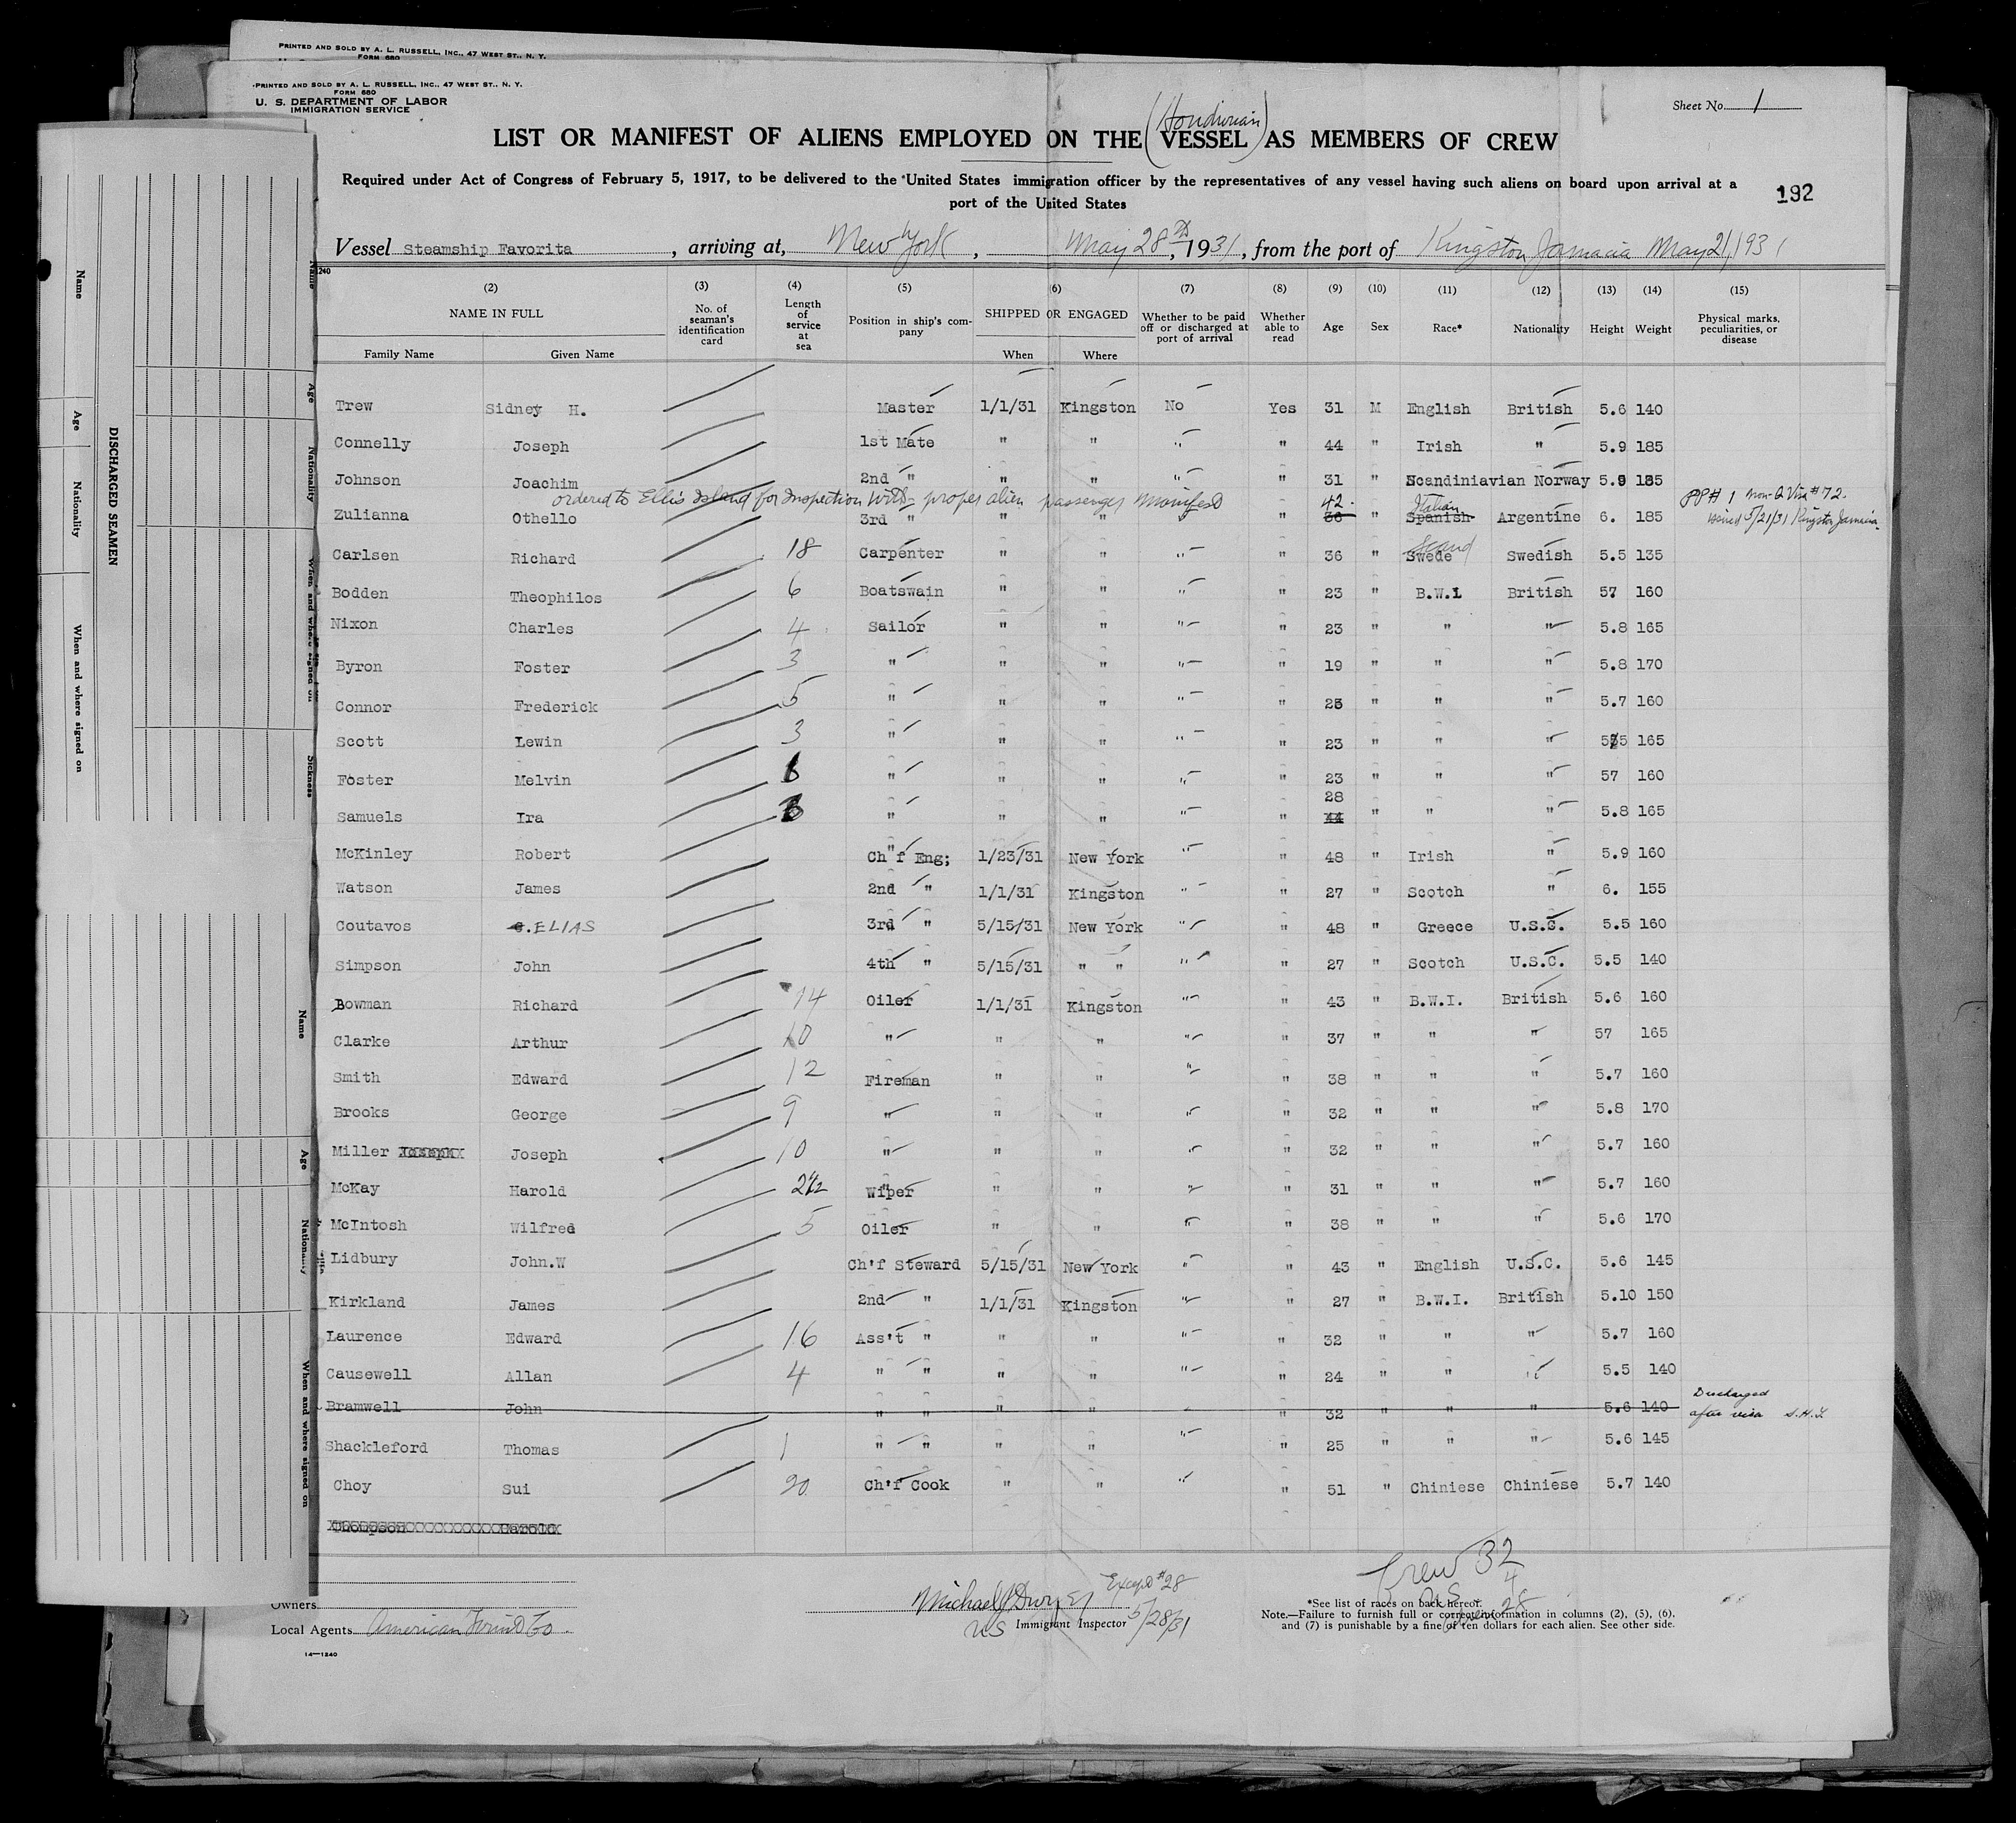 PRINTED AND SOLD BY A. L. RUSSELL, INC., 47 WEST ST., N. Y.
FORM 680
PRINTED AND SOLD BY A. L. RUSSELL, INC., 47 WEST ST., N. Y.
FORM 680
U. S. DEPARTMENT OF LABOR
IMMIGRATION SERVICE
Sheet No. 1
(Hondurian)
LIST OR MANIFEST OF ALIENS EMPLOYED ON THE VESSEL AS MEMBERS OF CREW
Required under Act of Congress of February 5, 1917, to be delivered to the United States immigration officer by the representatives of any vessel having such aliens on board upon arrival at a
port of the United States
192
Vessel Steamship Favorita, arriving at, New York, May 28th, 1931, from the port of Kingston Jamacia May 21, 1931
(2) NAME IN FULL Family Name Given Name
(3) No. of seaman's identification card
(4) Length of service at sea
(5) Position in ship's company
(6) SHIPPED OR ENGAGED When Where
(7) Whether to be paid off or discharged at port of arrival
(8) Whether able to read
(9) Age
(10) Sex
(11) Race*
(12) Nationality
(13) Height
(14) Weight
(15) Physical marks, peculiarities, or disease
Trew Sidney H. Master 1/1/31 Kingston No Yes 31 M English British 5.6 140
Connelly Joseph 1st Mate " " " " 44 " Irish " 5.9 185
Johnson Joachim 2nd " " " " " 31 " Scandiniavian Norway 5.9 185
ordered to Ellis Island for Inspection with proper alien passenger manifest
Zulianna Othello 3rd " " " " " 36 42 " Spanish Italian Argentine 6. 185 PP# 1 non-Q Visa #72. issued 5/21/31 Kingston Jamaica
Carlsen Richard 18 Carpenter " " " " 36 " Swede Scand Swedish 5.5 135
Bodden Theophilos 6 Boatswain " " " " 23 " B.W.I British 57 160
Nixon Charles 4 Sailor " " " " 23 " " " 5.8 165
Byron Foster 3 " " " " " 19 " " " 5.8 170
Connor Frederick 5 " " " " " 25 " " " 5.7 160
Scott Lewin 3 " " " " " 23 " " " 575 165
Foster Melvin 6 " " " " " 23 " " " 57 160
Samuels Ira " " " " " 28 44 " " " 5.8 165
McKinley Robert Ch'f Eng; 1/23/31 New York " " 48 " Irish " 5.9 160
Watson James 2nd " 1/1/31 Kingston " " 27 " Scotch " 6. 155
Coutavos ELIAS 3rd " 5/15/31 New York " " 48 " Greece U.S.C. 5.5 160
Simpson John 4th " 5/15/31 " " " " 27 " Scotch U.S.C. 5.5 140
Bowman Richard 14 Oiler 1/1/31 Kingston " " 43 " B.W.I. British 5.6 160
Clarke Arthur 10 " " " " " 37 " " " 57 165
Smith Edward 12 Fireman " " " " 38 " " " 5.7 160
Brooks George 9 " " " " " 32 " " " 5.8 170
Miller Joseph Joseph 10 " " " " " 32 " " " 5.7 160
McKay Harold 2½ Wiper " " " " 31 " " " 5.7 160
McIntosh Wilfred 5 Oiler " " " " 38 " " " 5.6 170
Lidbury John.W Ch'f Steward 5/15/31 New York " " 43 " English U.S.C. 5.6 145
Kirkland James 2nd " 1/1/31 Kingston " " 27 " B.W.I. British 5.10 150
Laurence Edward 16 Ass't " " " " " 32 " " " 5.7 160
Causewell Allan 4 " " " " " " 24 " " " 5.5 140
Bramwell John " " " " " " 32 " " " 5.6 140 Discharged after visa
Shackleford Thomas 1 " " " " " " 25 " " " 5.6 145
Choy Sui 20 Ch'f Cook " " " " 51 " Chiniese Chiniese 5.7 140
Thompson Harold
Crew 32
4
28
Owners
Local Agents American Fruit Co.
Michael J Dwyer Except #28
US Immigrant Inspector 5/28/31
*See list of races on back hereof.
Note.—Failure to furnish full or correct information in columns (2), (5), (6),
and (7) is punishable by a fine of ten dollars for each alien. See other side.
14—1240
DISCHARGED SEAMEN
Name
Age
Nationality
When and where signed on
Name
Age
Nationality
When and where signed on
Sickness
Name
Age
Nationality
When and where signed on